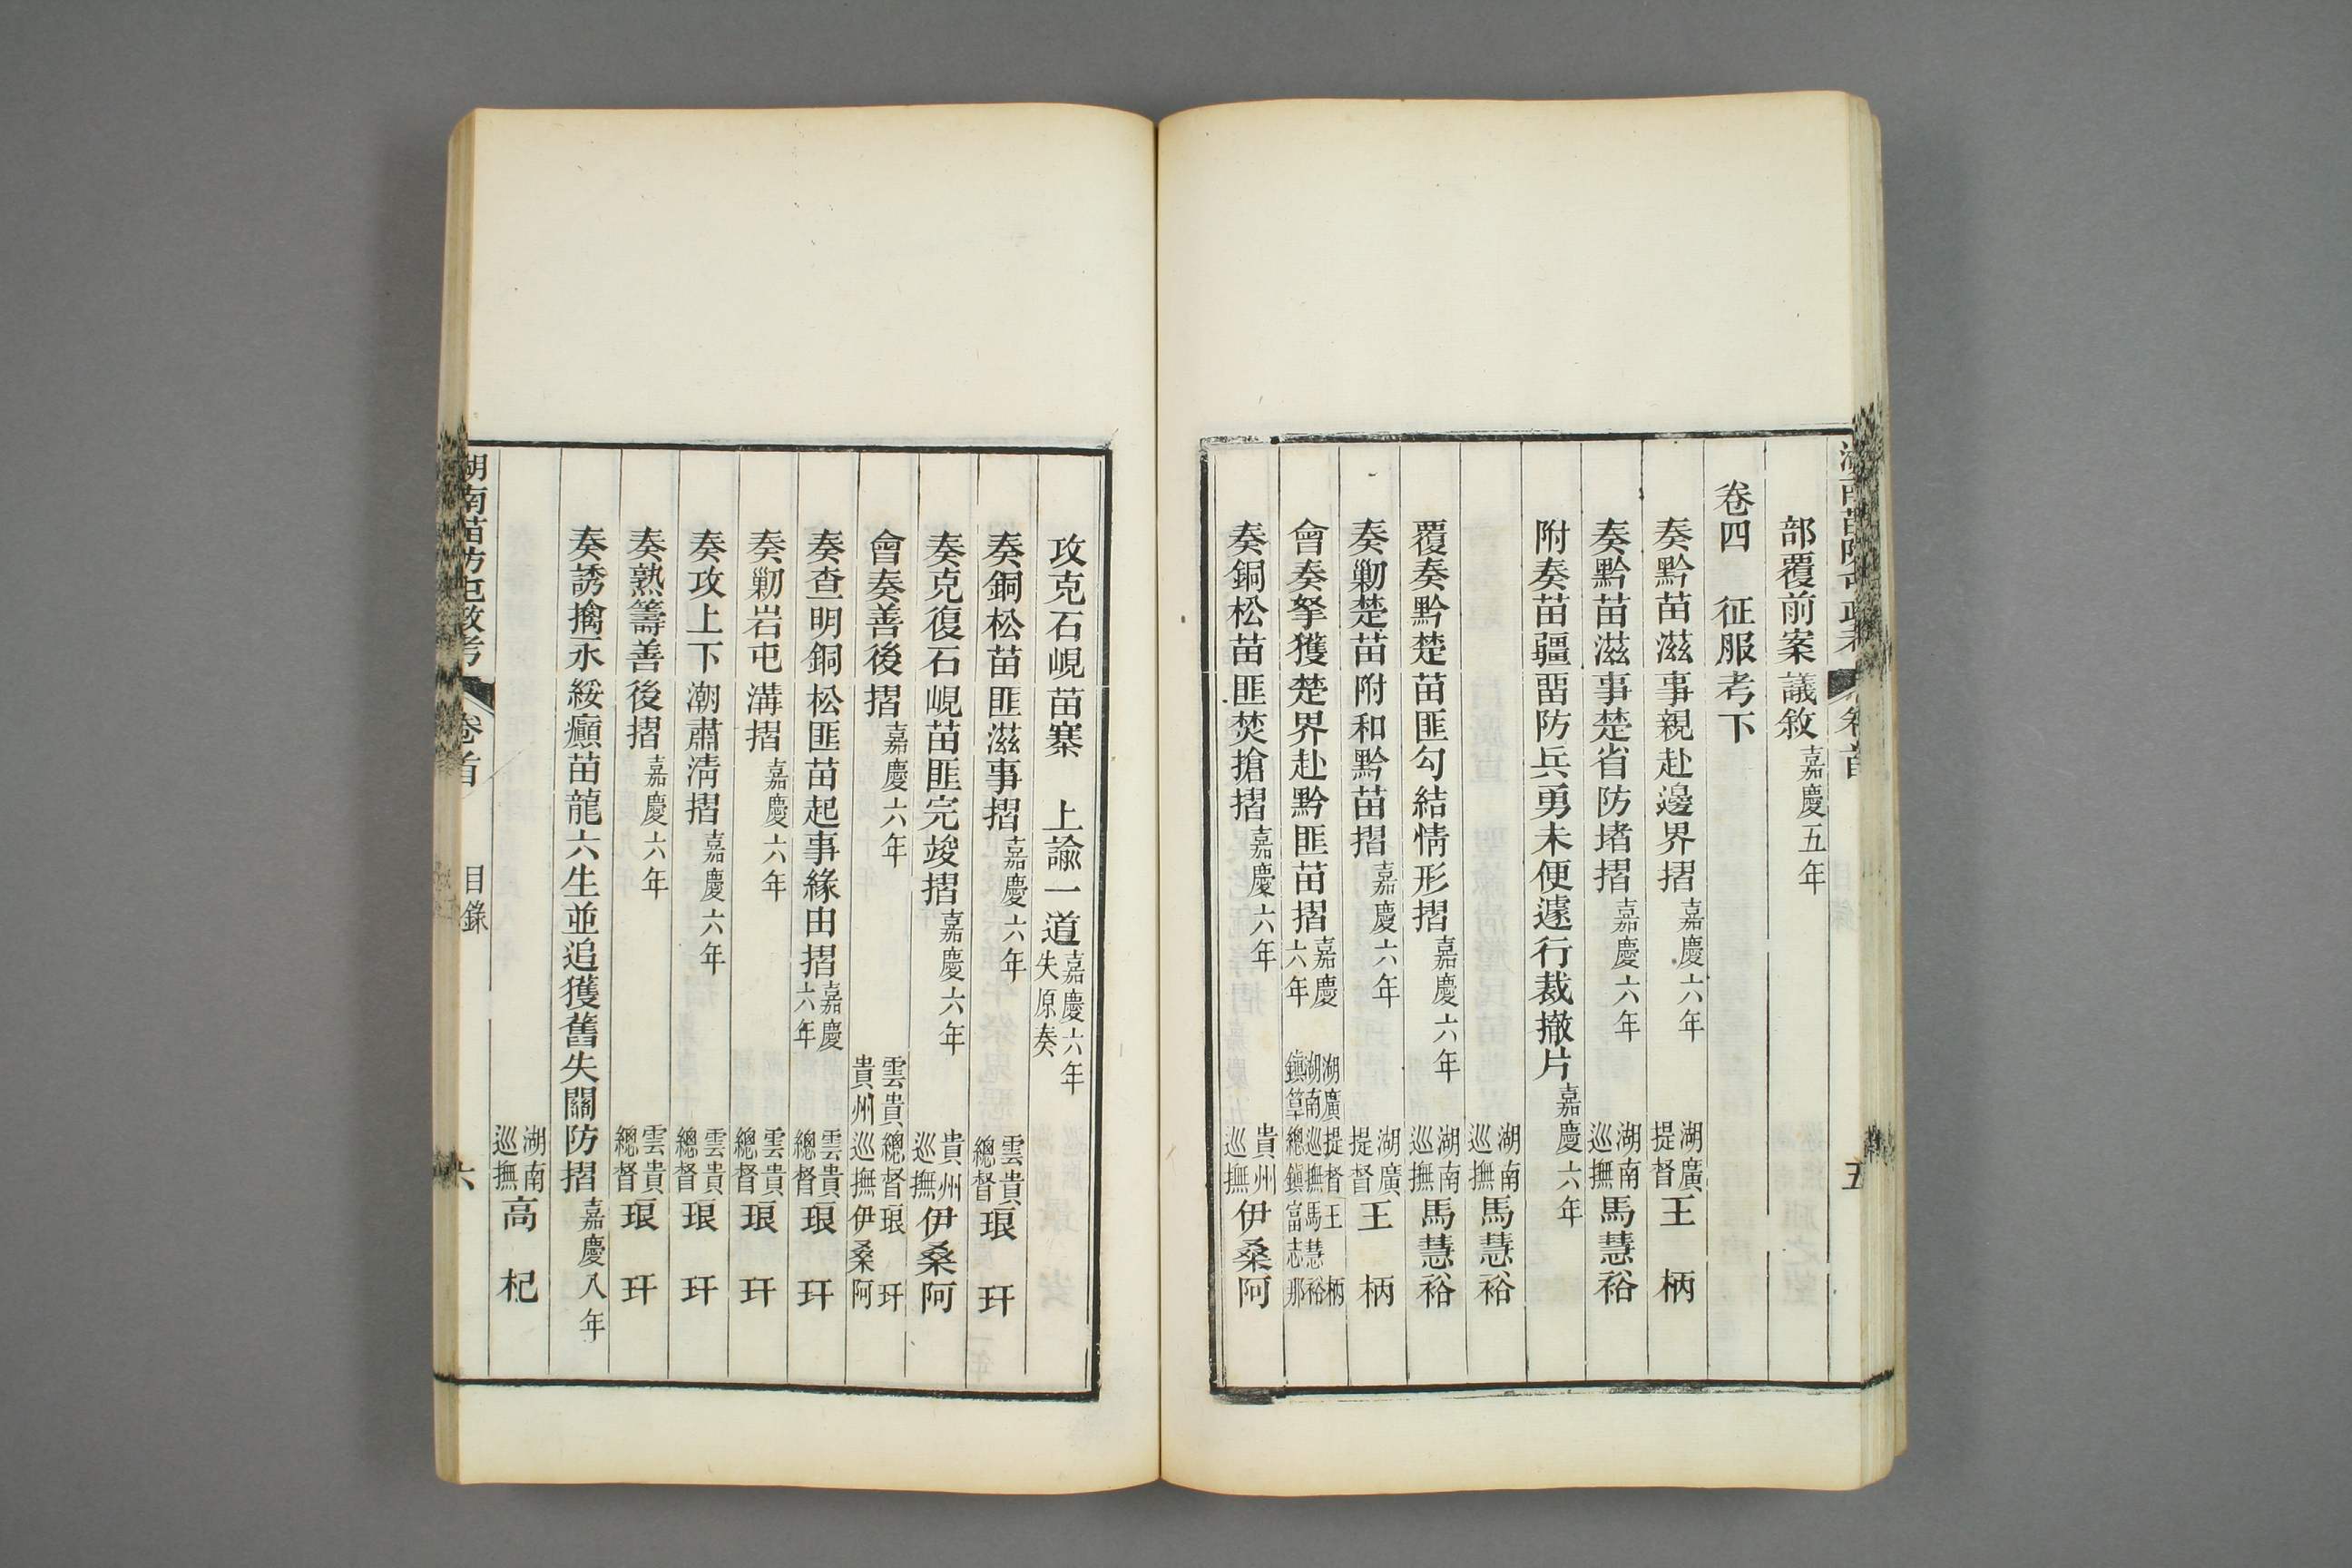 部覆前案議敘嘉慶五年
卷四　征服考下
奏黔苗滋事親赴邊界摺嘉慶六年　湖廣提督王　柄
奏黔苗滋事楚省防堵摺嘉慶六年　湖南巡撫馬慧裕
附奏苗疆畱防兵勇未便遽行裁撤片嘉慶六年
湖南巡撫馬慧裕
覆奏黔楚苗匪勾結情形摺嘉慶六年　湖南巡撫馬慧裕
奏勦楚苗附和黔苗摺嘉慶六年　湖廣提督王　柄
會奏拏獲楚界赴黔匪苗摺嘉慶六年　湖廣提督王　柄　湖南巡撫馬慧裕　鎮筸總鎮富志那
奏銅松苗匪焚搶摺嘉慶六年　貴州巡撫伊桑阿
攻克石峴苗寨　上諭一道嘉慶六年失原奏
奏銅松苗匪滋事摺嘉慶六年　雲貴總督琅　玕
奏克復石峴苗匪完竣摺嘉慶六年　貴州巡撫伊桑阿
會奏善後摺嘉慶六年　雲貴總督琅　玕　貴州巡撫伊桑阿
奏查明銅松匪苗起事緣由摺嘉慶六年　雲貴總督琅　玕
奏勦岩屯溝摺嘉慶六年　雲貴總督琅　玕
奏攻上下潮肅淸摺嘉慶六年　雲貴總督琅　玕
奏熟籌善後摺嘉慶六年　雲貴總督琅　玕
奏誘擒永綏癲苗龍六生並追獲舊失關防摺嘉慶八年
湖南巡撫高　杞
湖南苗防屯政考　卷首　目錄　六